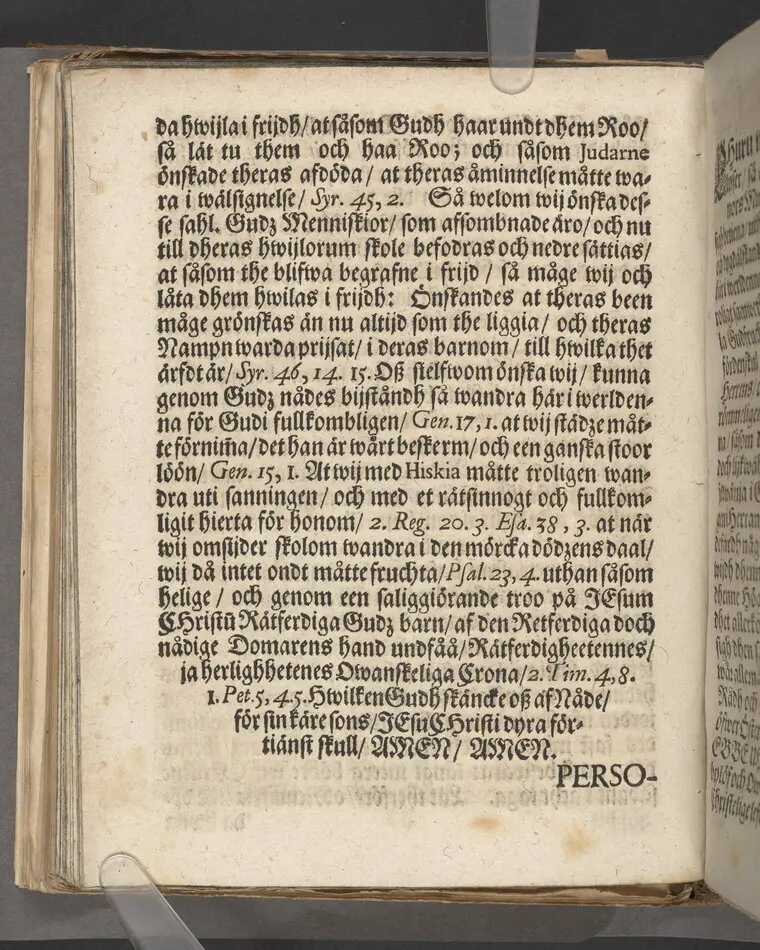 da hwijla i frijdh/ at såsom Gudh haar undt dhem Roo/
så låt tu them och haa Roo; och såsom Judarne
önskade theras afdöda/ at theras åminnelse måtte wa-
ra i wälsignelse/ Syr. 45, 2. Så welom wij önska des-
se sahl. Gudz Menniskior/ som afsombnade äro/ och nu
till dheras hwijlorum skole befodras och nedresättias/
at såsom the blifwa begrafne i frijd / så måge wij och
låta dhem hwilas i frijdh: Önskandes at theras been
måge grönskas än nu altijd som the liggia/ och theras
Nampn warda prijsat/ i deras barnom/ till hwilka thet
ärfdt är/ Syr. 46, 14. 15. Oß sielfwom önska wij/ kunna
genom Gudz nådes bijståndh så wandra här i werlden-
na för Gudi fullkombligen/ Gen. 17, 1. at wij städze måt-
te förnim̃a/ det han är wårt beskerm/ och een ganska stoor
löön/ Gen. 15, 1. At wij med Hiskia måtte troligen wan-
dra uti sanningen/ och med et rätsinnogt och fullkom-
ligit hierta för honom/ 2. Reg. 20. 3. Esa. 38, 3. at när
wij omsijder skolom wandra i den mörcka dödzens daal/
wij då intet ondt måtte fruchta/ Psal. 23, 4. uthan såsom
helige / och genom een saliggiörande troo på JEsum
CHristũ Rätferdiga Gudz barn/ af den Retferdiga doch
nådige Domarens hand undfåå/ Rätferdigheetennes/
ja herlighhetenes Owanskeliga Crona/ 2. Tim. 4, 8.
1. Pet. 5, 4. 5. Hwilken Gudh skäncke oß af Nåde/
för sin käre sons/ JEsu CHristi dyra för-
tiänst skull/ AMEN/ AMEN.
PERSO-